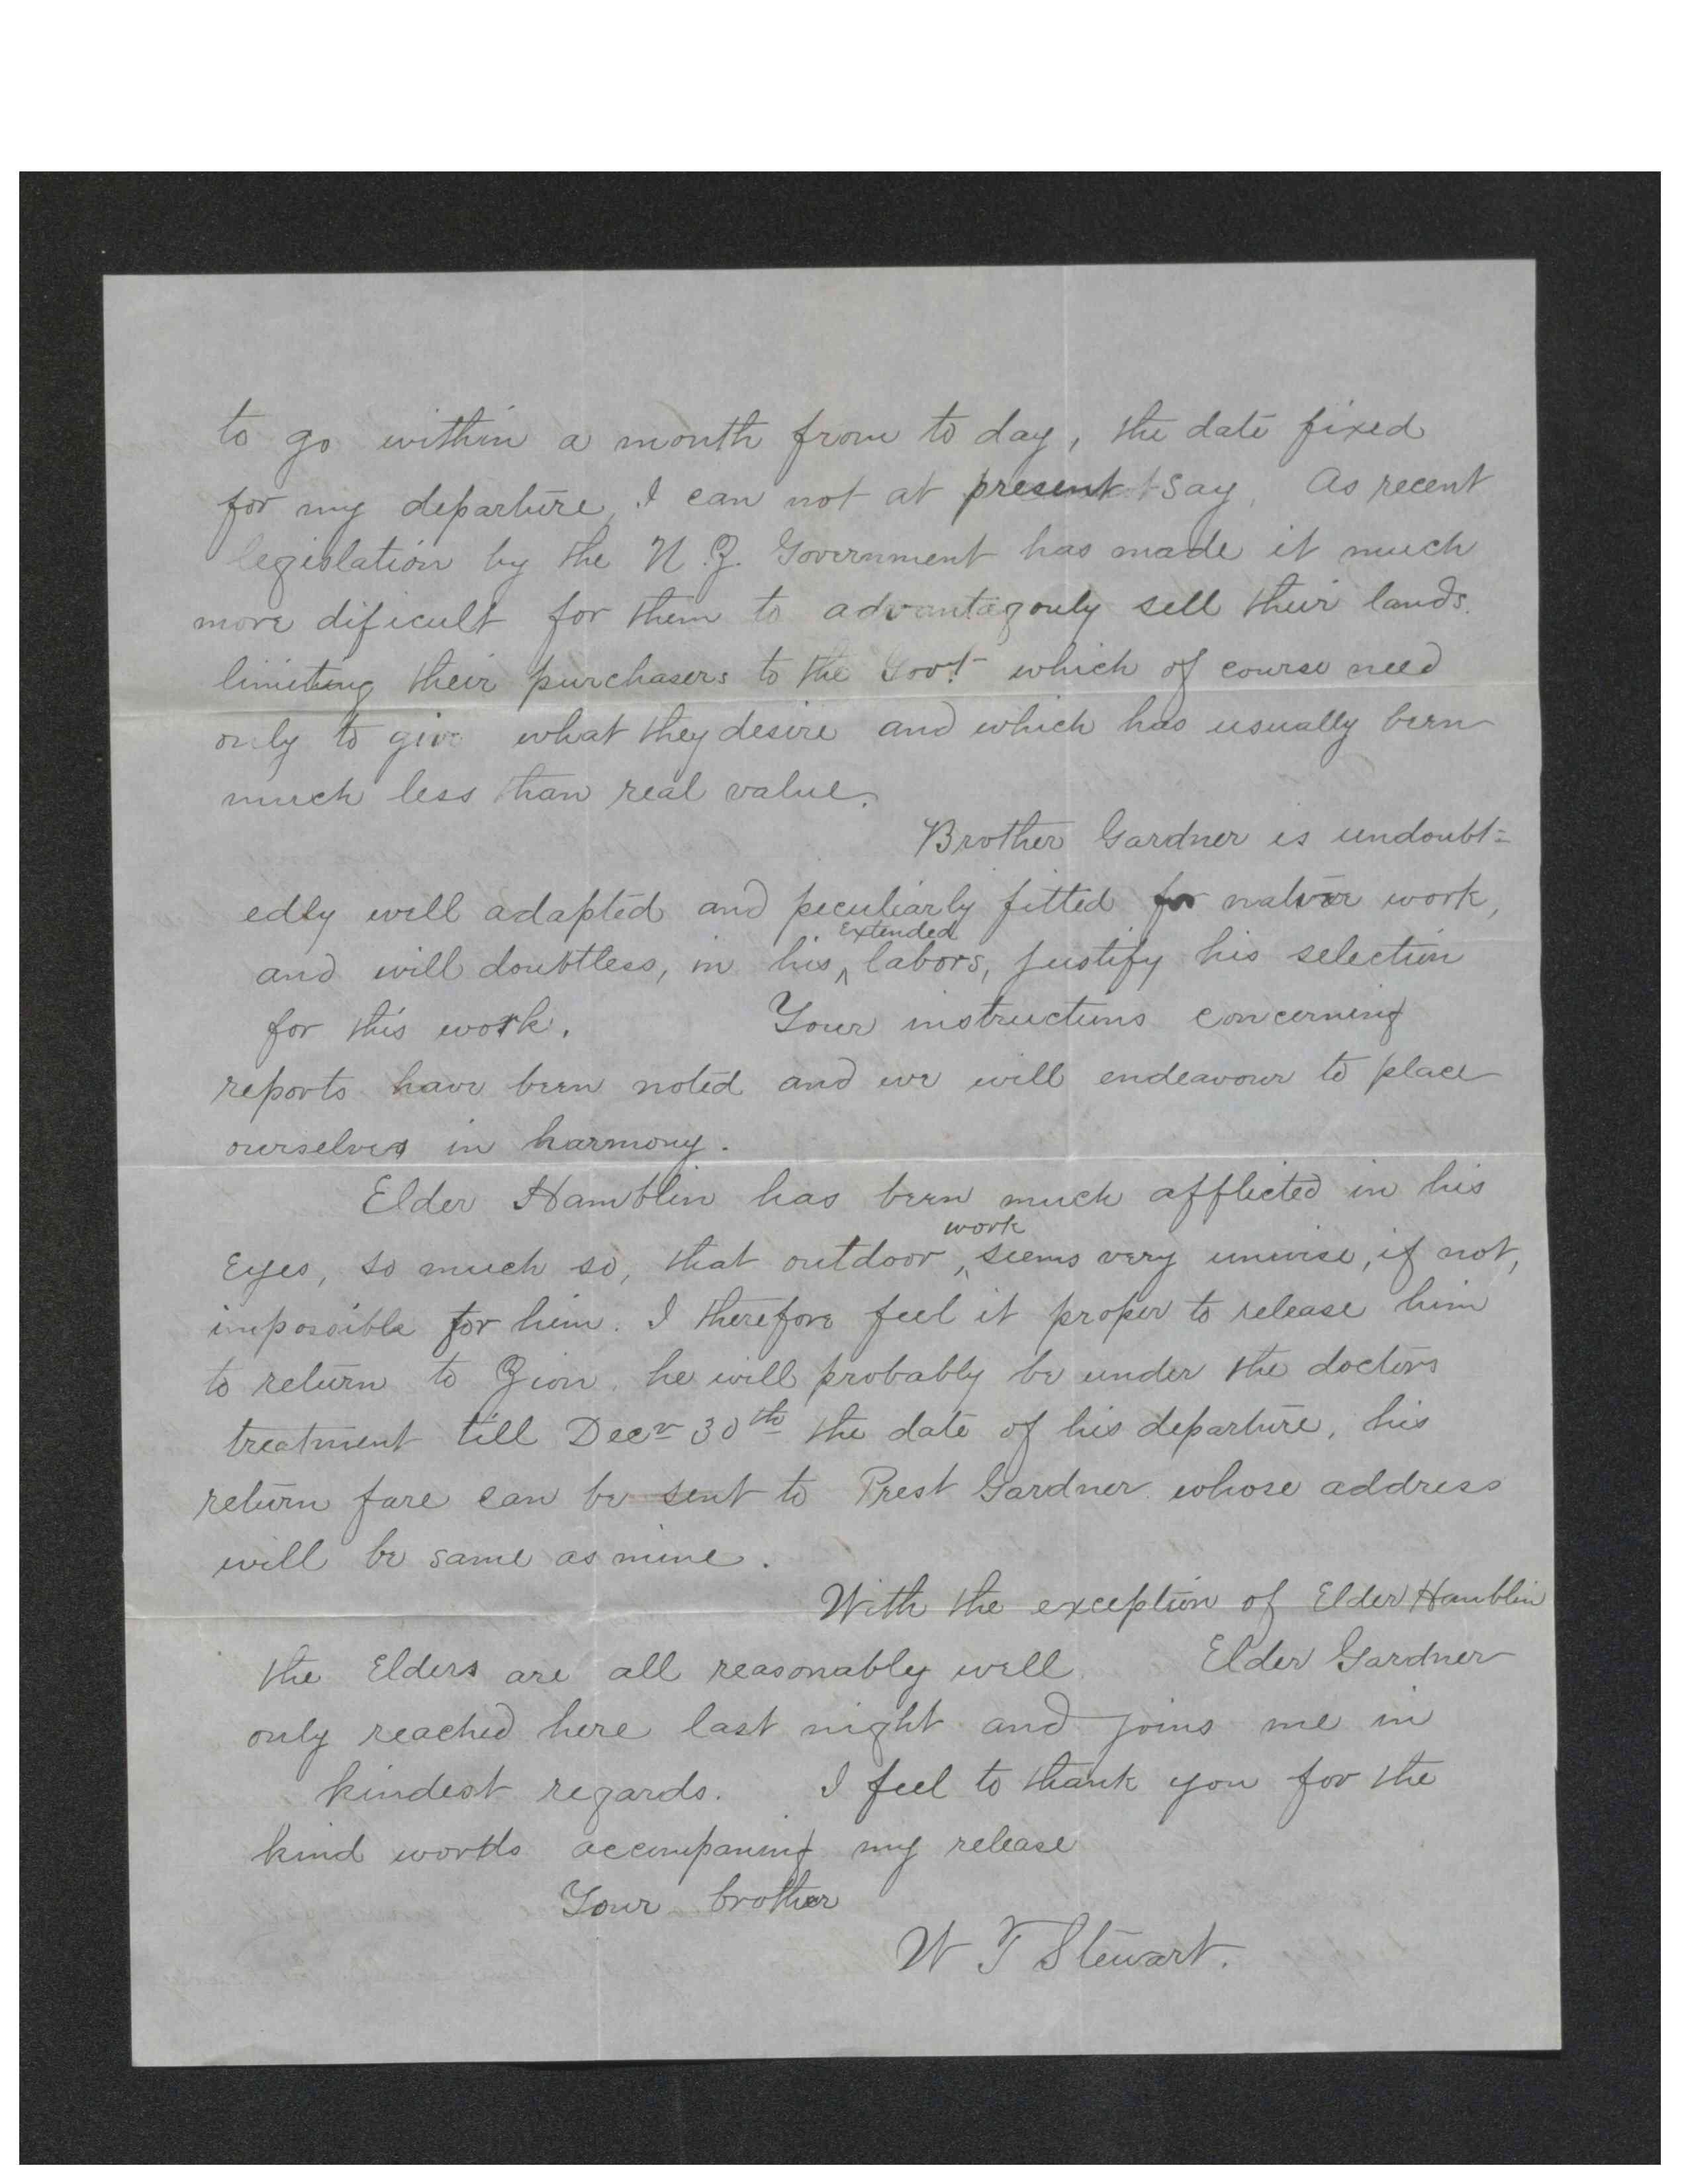 to go within a month from to day, the date fixed
for my departure, I can not at present say. As recent
legislation by the N.Z. Government has made it much
more dificult for them to advantagously sell their lands.
limiting their purchasers to the Govt which of course need
only to give what they desire and which has usually been
much less than real value.
Brother Gardner is undoubt=
edly well adapted and peculiarly fitted for native work,
Extended
and will doubtless, in his ^ labors, justify his selection
for this work. Your instructions concerning
reports have been noted and we will endeavour to place
ourselves in harmony.
Elder Hamblin has been much afflicted in his
work
Eyes, so much so, that outdoor ^ seems very unwise, if not,
impossible for him. I therefore feel it proper to release him
to return to Zion. he will probably be under the doctors
treatment till Decr 30th the date of his departure, his
return fare can be sent to Prest Gardner whose address
will be same as mine.
With the exception of Elder Hamblin
the Elders are all reasonably well. Elder Gardner
only reached here last night and joins me in
kindest regards. I feel to thank you for the
kind words accompaning my release
Your brother
W T Stewart.